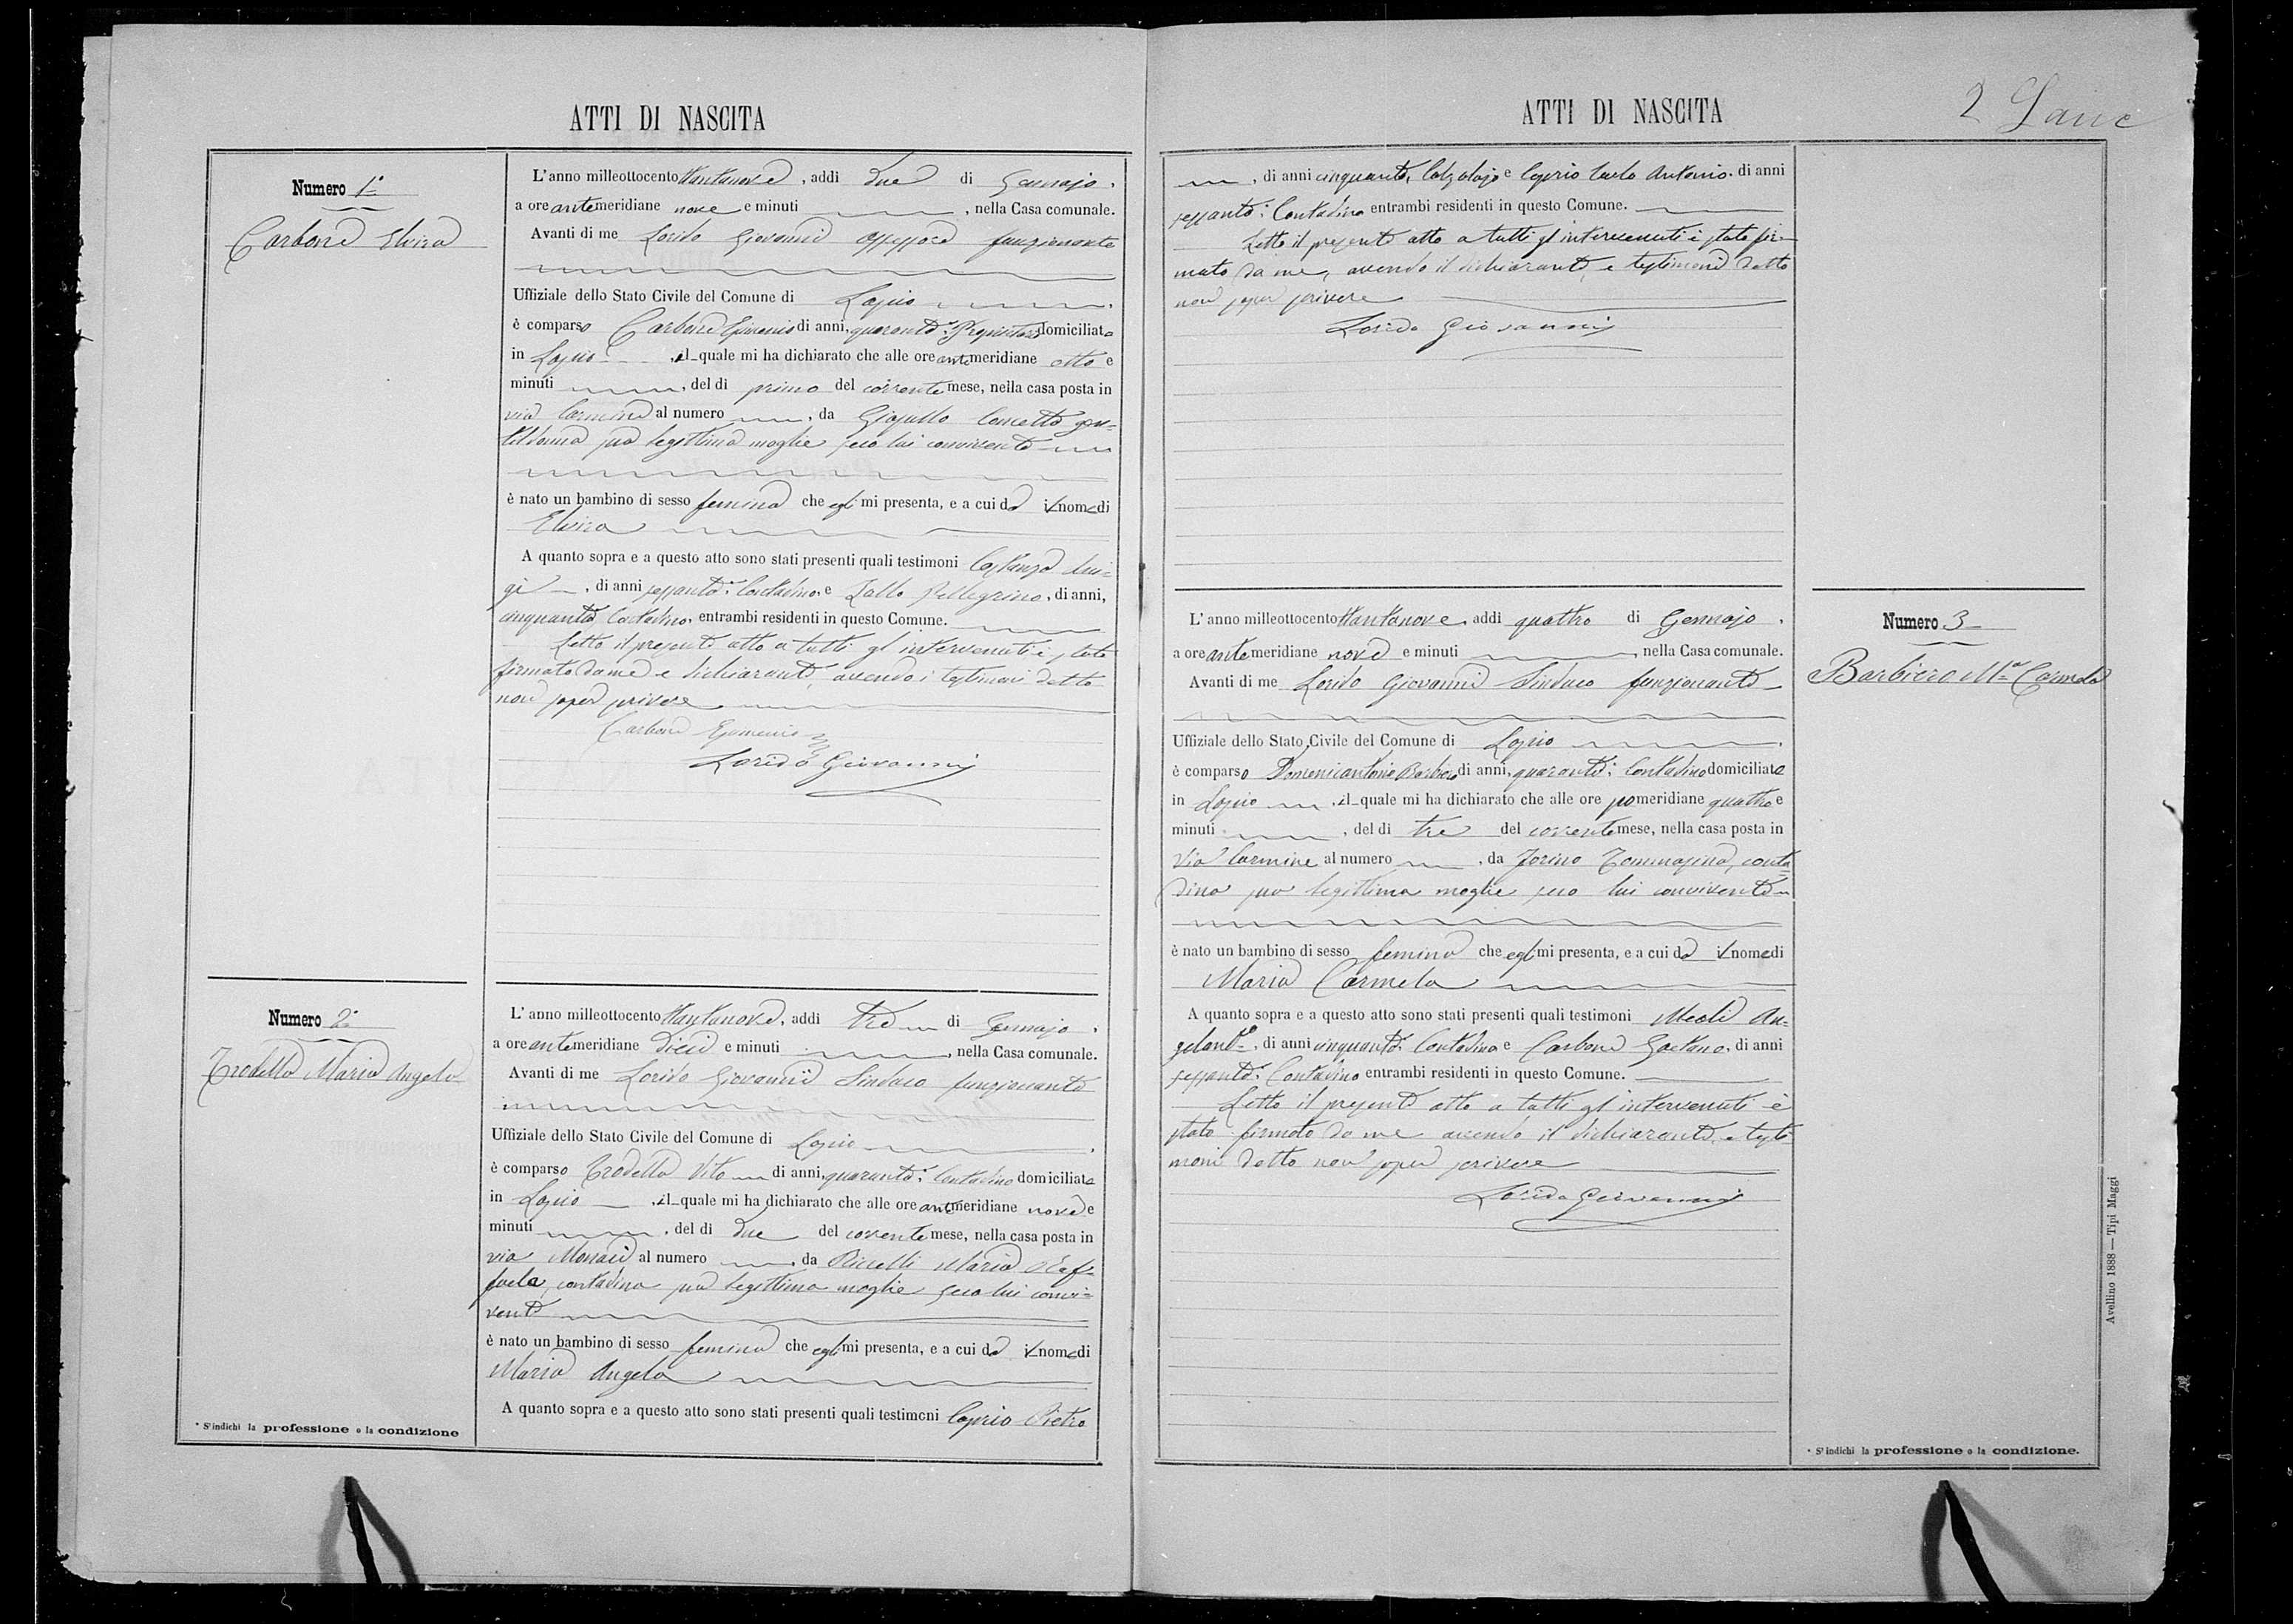 ATTI DI NASCITA
Numero 1°
Carbone Elvira
L'anno milleottocento ottantanove, addi due di Gennajo,
a ore antemeridiane nove e minuti , nella Casa comunale.
Avanti di me Lorido Giovanni Assessore funzionante
Uffiziale dello Stato Civile del Comune di Lapio
è comparso Carbone di anni, quaranta, Proprietario domiciliato
in Lapio , il quale mi ha dichiarato che alle ore antemeridiane otto e
minuti , del dì primo del corrente mese, nella casa posta in
via Carmine al numero , da Concetta gen=
tildonna sua legittima moglie seco lui convivente
è nato un bambino di sesso femina che egli mi presenta, e a cui dà il nome di
Elvira
A quanto sopra e a questo atto sono stati presenti quali testimoni Costanza Lui=
gi , di anni sessanta, Contadino e Zallo Pellegrino, di anni,
cinquanta, Contadino, entrambi residenti in questo Comune.
Letto il presente atto a tutti gl'intervenuti è stato
firmato da me e dichiarante, avendo i testimoni detto
non saper scrivere
Carbone
Lorido Giovanni
Numero 2°
Trodella Maria Angela
L'anno milleottocento ottantanove, addi tre di Gennajo,
a ore antemeridiane dieci e minuti , nella Casa comunale.
Avanti di me Lorido Giovanni Sindaco funzionante
Uffiziale dello Stato Civile del Comune di Lapio
è comparso Trodella Vito di anni, quaranta, Contadino domiciliato
in Lapio , il quale mi ha dichiarato che alle ore antemeridiane nove e
minuti , del dì due del corrente mese, nella casa posta in
via Monaci al numero , da Maria Raf=
faela, contadina sua legittima moglie seco lui convi=
vente
è nato un bambino di sesso femina che egli mi presenta, e a cui dà il nome di
Maria Angela
A quanto sopra e a questo atto sono stati presenti quali testimoni Caprio Pietro
* S'indichi la professione o la condizione
ATTI DI NASCITA
2
, di anni cinquanta, Calzolajo e Caprio Carlo Antonio, di anni
sessanta, Contadino entrambi residenti in questo Comune.
Letto il presente atto a tutti gl'intervenuti è stato fir=
mato da me, avendo il dichiarante e testimoni detto
non saper scrivere
Lorido Giovanni
Numero 3
Barbiero Ma Carmela
L'anno milleottocento ottantanove, addi quattro di Gennajo,
a ore antemeridiane nove e minuti , nella Casa comunale.
Avanti di me Lorido Giovanni Sindaco funzionante
Uffiziale dello Stato Civile del Comune di Lapio
è comparso Domenicantonio Barbiero di anni, quaranta, Contadino domiciliato
in Lapio , il quale mi ha dichiarato che alle ore pomeridiane quattro e
minuti , del dì tre del corrente mese, nella casa posta in
via Carmine al numero , da Forino Tommasina, conta
dina sua legittima moglie seco lui convivente
è nato un bambino di sesso femina che egli mi presenta, e a cui dà il nome di
Maria Carmela
A quanto sopra e a questo atto sono stati presenti quali testimoni Meoli An=
gelant°, di anni cinquanta, Contadino e Carbone Gaetano, di anni
sessanta, Contadino entrambi residenti in questo Comune.
Letto il presente atto a tutti gl'intervenuti è
stato firmato da me avendo il dichiarante e testi
moni detto non saper scrivere
Lorido Giovanni
* S'indichi la professione o la condizione.
Avellino 1888 — Tipi Maggi